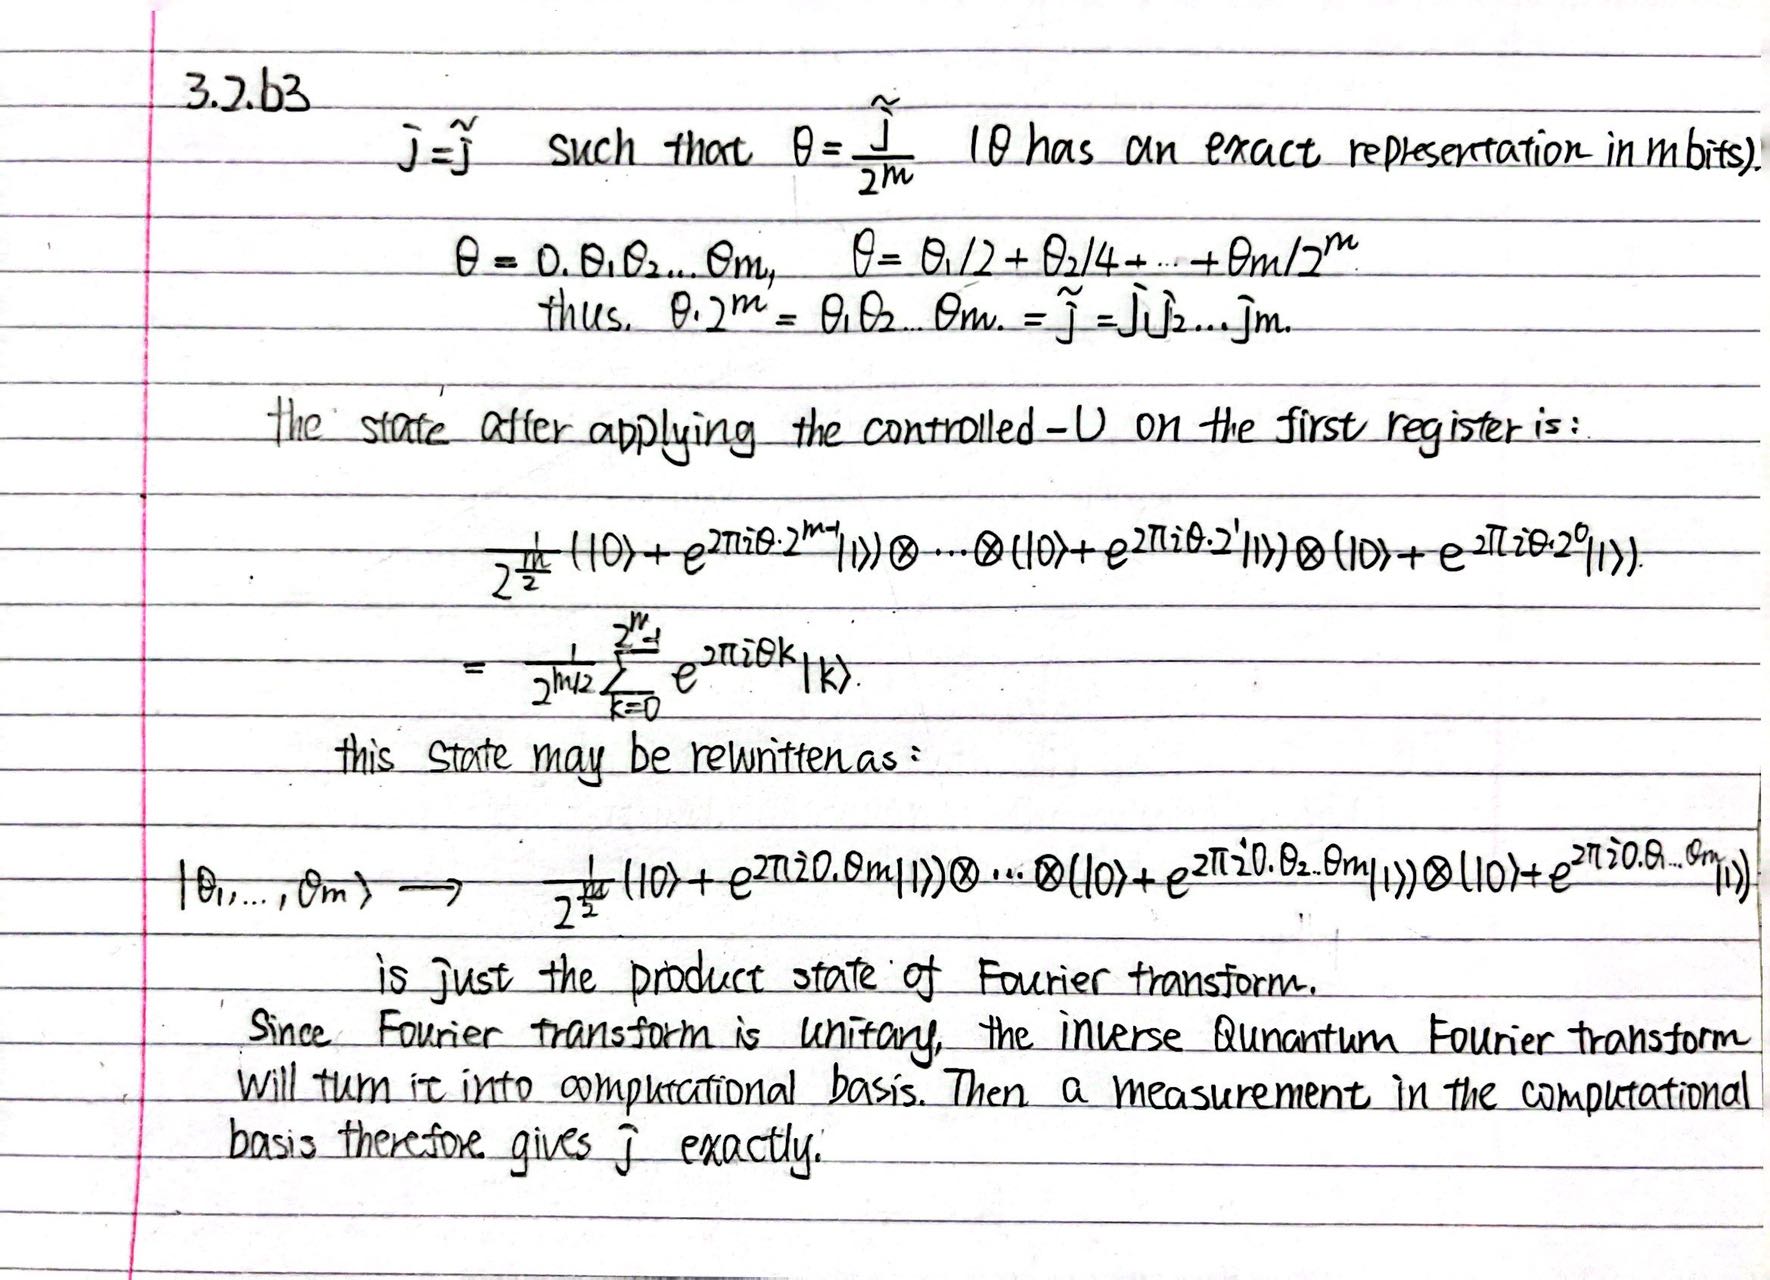 3.2.b3
j = j̃ such that θ = j̃/2^m (θ has an exact representation in m bits).
θ = 0.θ₁θ₂...θm, θ = θ₁/2 + θ₂/4 + ... + θm/2^m
thus. θ·2^m = θ₁θ₂...θm. = j̃ = j₁j₂...jm.
the state after applying the controlled-U on the first register is:
1/2^(m/2) (|0⟩ + e^(2πiθ·2^(m-1))|1⟩) ⊗ ... ⊗ (|0⟩ + e^(2πiθ·2^1)|1⟩) ⊗ (|0⟩ + e^(2πiθ·2^0)|1⟩).
= 1/2^(m/2) ∑_(k=0)^(2^m-1) e^(2πiθk)|k⟩.
this state may be rewritten as:
|θ₁,...,θm⟩ → 1/2^(m/2) (|0⟩ + e^(2πi0.θm)|1⟩) ⊗ ... ⊗ (|0⟩ + e^(2πi0.θ₂..θm)|1⟩) ⊗ (|0⟩ + e^(2πi0.θ₁...θm)|1⟩)
is just the product state of Fourier transform.
Since Fourier transform is unitary, the inverse Qunantum Fourier transform
will turn it into computational basis. Then a measurement in the computational
basis therefore gives j̃ exactly.